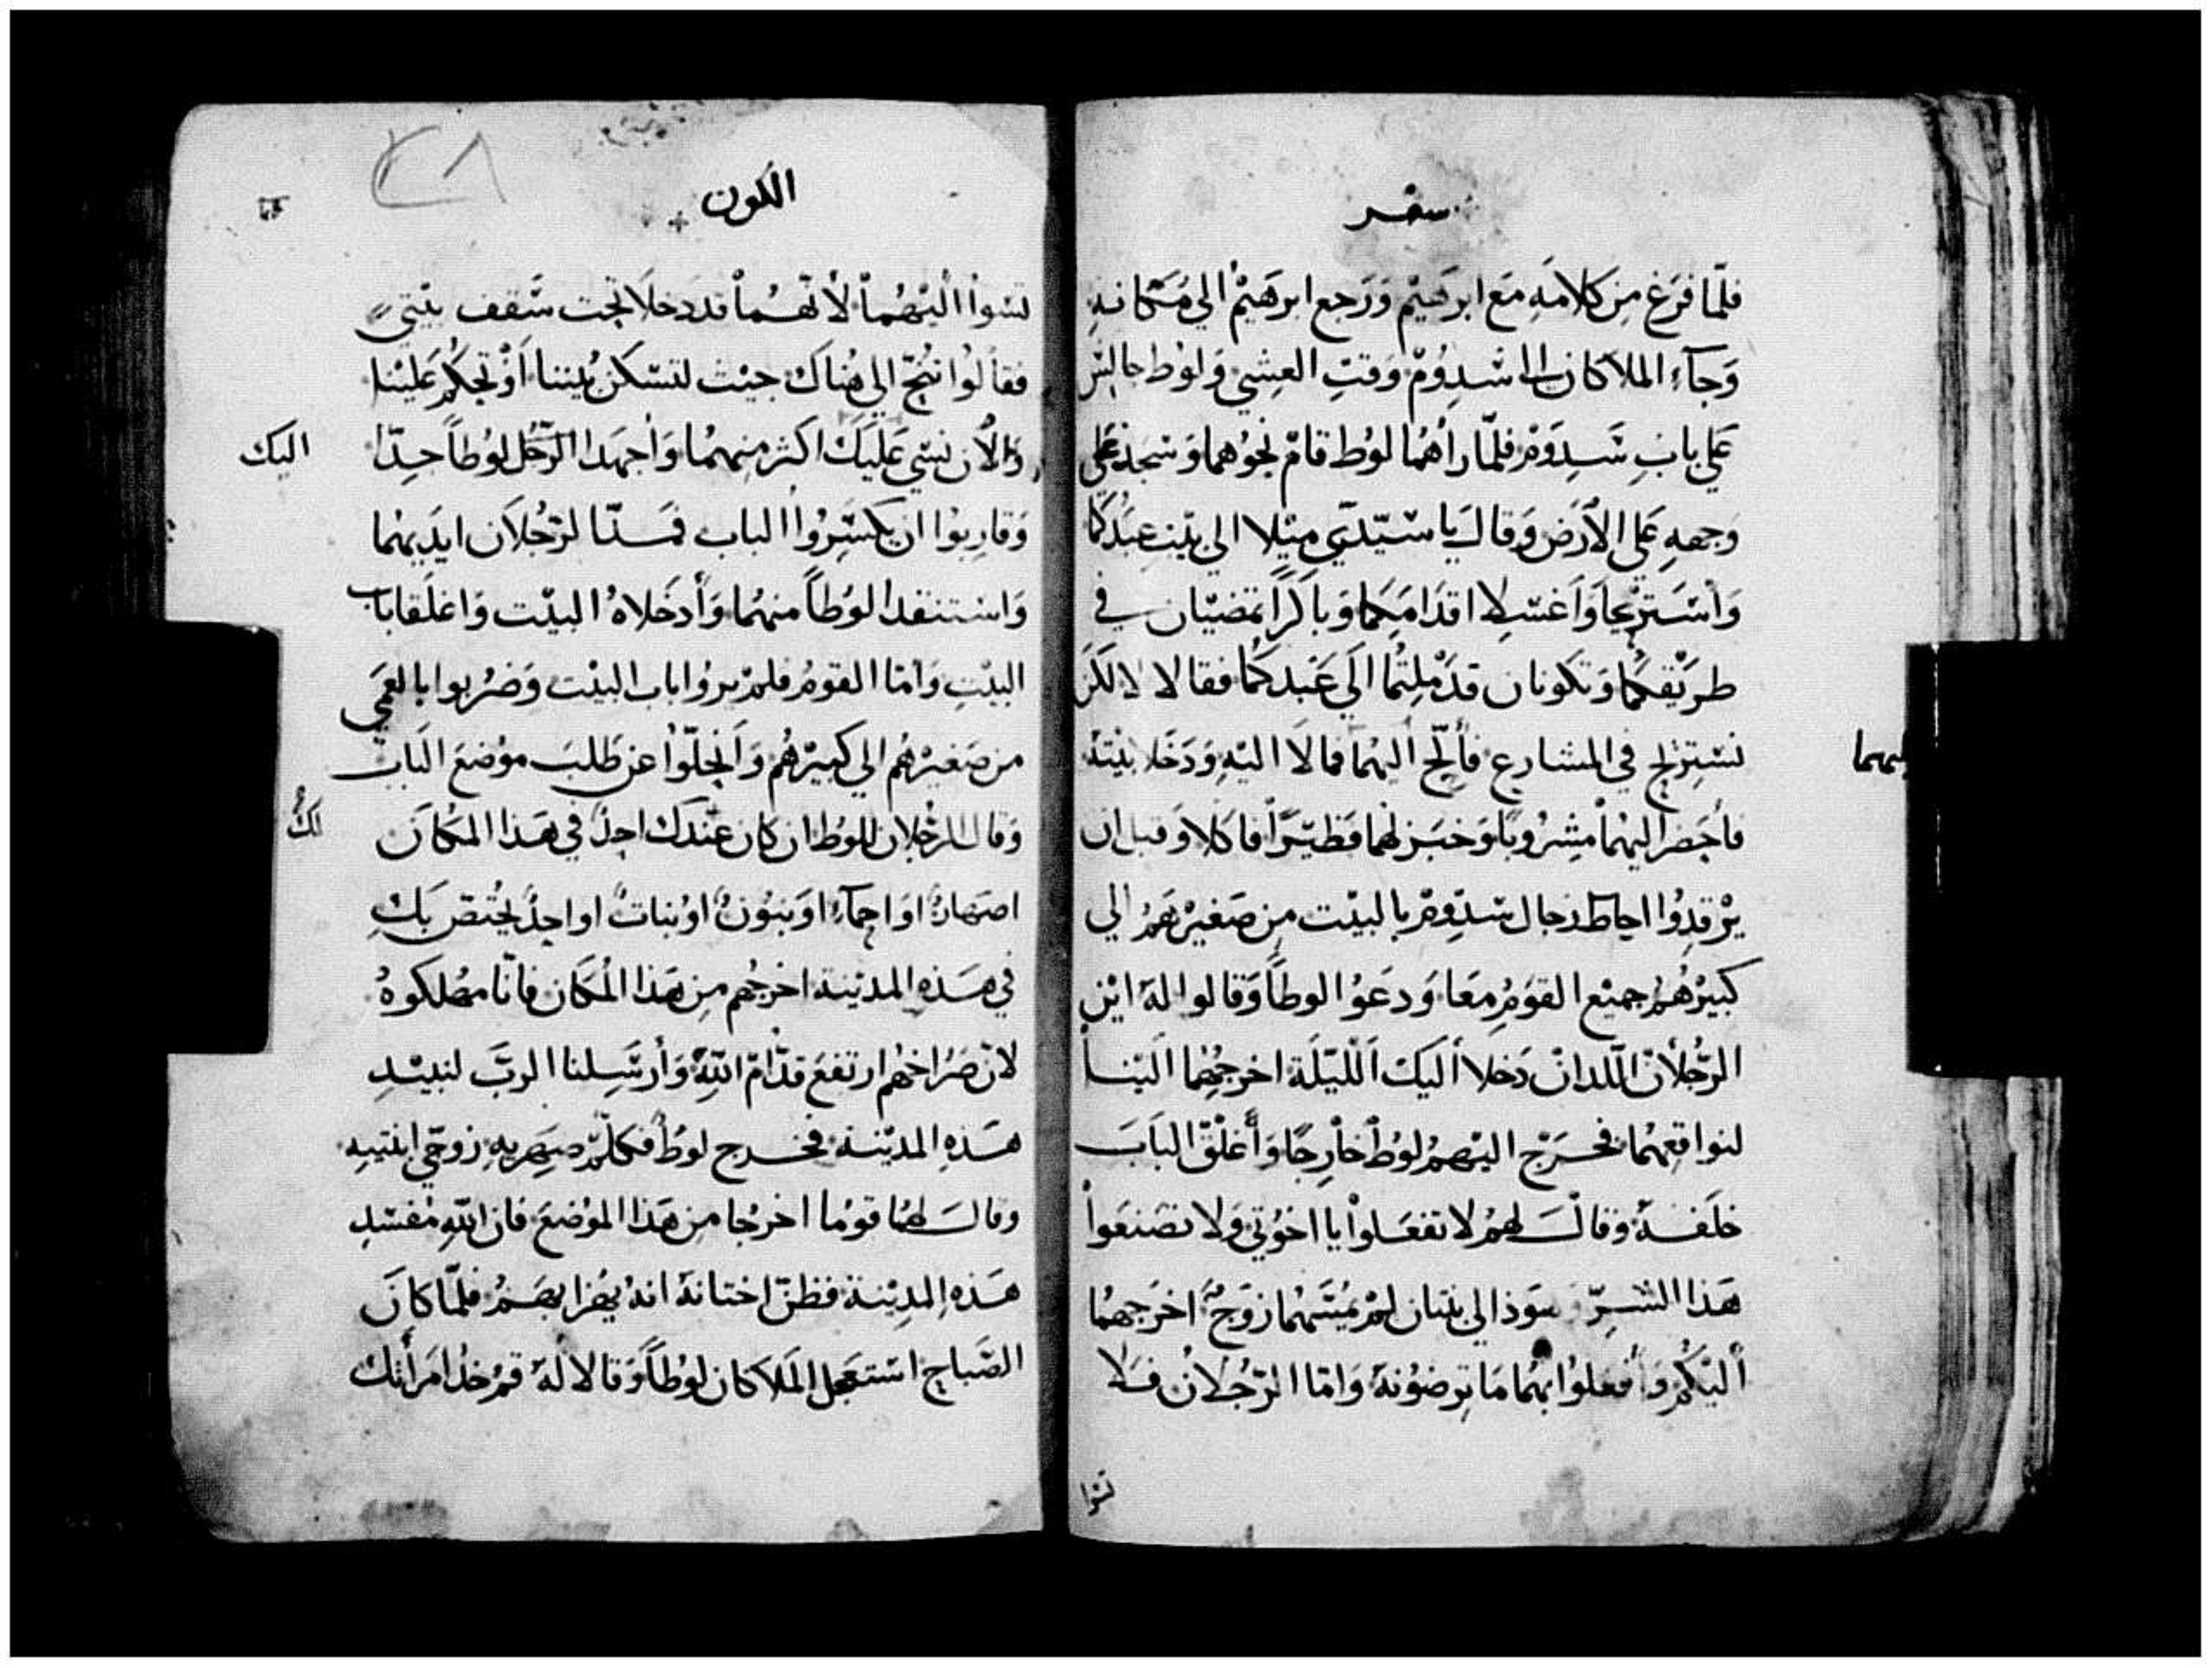 سفر
فلمّا فرَغ مِن كلامَهِ مَع ابرَهيْم وَرَجع ابرهيْم الي مَكانهِ
وَجآء الملاكان الى سَدوُمْ وَقتِ العِشي وَلوُط جالسْ
عَلي بابِ سَدوَمْ فلمّا راَهُما لوُط قامْ نحوُهما وَسَجدْ عَلى
وَجههِ عَلى الاَرَض وَقالَ يا سَيّديّ مِيْلا الي بيْتِ عبَدكُما
وَاسْتَريْحا وَاَغسْلا اقدَامَكما وَباكراً تمضيْان في
طرَيْقكُما وَتكونان قدَ مْلِتُما الَي عَبْدكُما فقالا لا لاكَن
نسْتريْح في المشارع فأَلحّ اليْهُما فمالاَ اليْهِ وَدَخَلا بيْتهُ
ليهما
فأَحَضر اليهْماْ مَشِرْوُباً وَخبَز لهما فَطيْرَاً فاكلا وَقبل ان
يرْقدِوُا احِاط رَجال سَدِومْ بالبيْت مِن صَغيرْهَمُ الي
كبيْرْهُمُ جميْع القوَمُ مِعَا وَدعَوُا لوطاً وَقالوا لهَ ايْن
الرّجُلانْ اللّدانْ دَخلا أليَكْ اللّيْلَة اخرجِهُما اليْنا
لنواقعِهُما فخَرَج اليْهمُ لوُطْ خاْرِجًا وَأَغلْقَ البَابَ
خلَفهُ وَقالَ لهمُ لا تفعَلواْ يا اخوُتي وَلا تصَنعَواْ
هَذا الشّرِ سوَدْ الي بنتان لمْ يمَسَّهُما زوَجُ اخرَجهُما
أليْكُمْ وَأفعلوُا بهُما مَا ترِضوُنهُ وَامّا الرّجُلانْ فلا
تسْوا
الكون
٣٨
تسْواْ اليْهُماْ لأنهُّماْ قد دخلا تحت سَّقف بيْتي
فقالوُا تنُحّ الي هُناكَ جيْت لتسْكن بُيننا أَوْ تحْكمُ عَليْنا
وَالأن نسْي عَليكَ اكثر منهما وَأجهدَا الرّجُل لوُطاً جدّا
اليك
وَقاربوُا ان يكسَّروُا الباب فمَدّا الرّجُلان ايدَيهُما
وَاسْتنقدا لوُطاً منهُما وَأدخَلاهُ البيْت وَاغلَقا باب
البيْتِ وَامّا القومُ فلمْ يروُا باب البيْت وَضرُبوا بالعَمي
من صَغيرْهُم الي كبيْرْهُم وَاَنحلوّا عن طَلبَ موُضعَ الَباب
وَقال الرّجُلان للوُط ان كان عنَدك احِدْ في هَذا المكانَ
لكُ
اصَهارْ اوَ احمآء اوَ بنوُنْ اوُ بناتْ او احِدْ يختُصّ بكَ
في هَذهِ المديْنة اخرجُهم مِن هَذا المُكان فانّا مهُلكوهُ
لانّ صَرُاخهُم ارتفعَ قدّامْ اللهِ وَأرسَلنا الربّ لنبيْدِ
هَذهِ المديْنة فخرج لوُط فكلمّ صِهريهِ زوجيّ ابنتيهِ
وقالَ لهُما قوُما اخرُجا من هَذا الموُضع فان اللهِ مُفسْدِ
هَذهِ المديْنة فظنّ اختانهُ انهُ يهُزا بهَمُ فلمّا كانَ
الصّباح استعَجل الملَاكان لوُطاً وَقالا لهُ قمُ خُد امَرأَتكَ